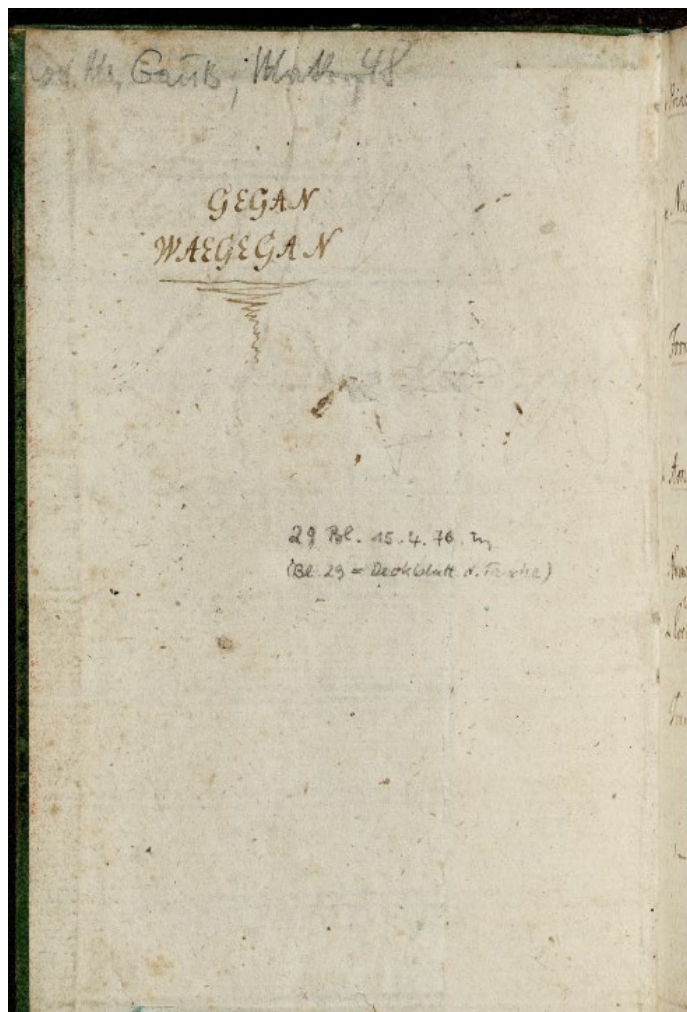 Cod. Ms. Gauß, Math. 48
GEGAN
WAEGEGAN
29 Bl. 15.4.76
(Bl. 29 = Deckblatt d. Tasche)